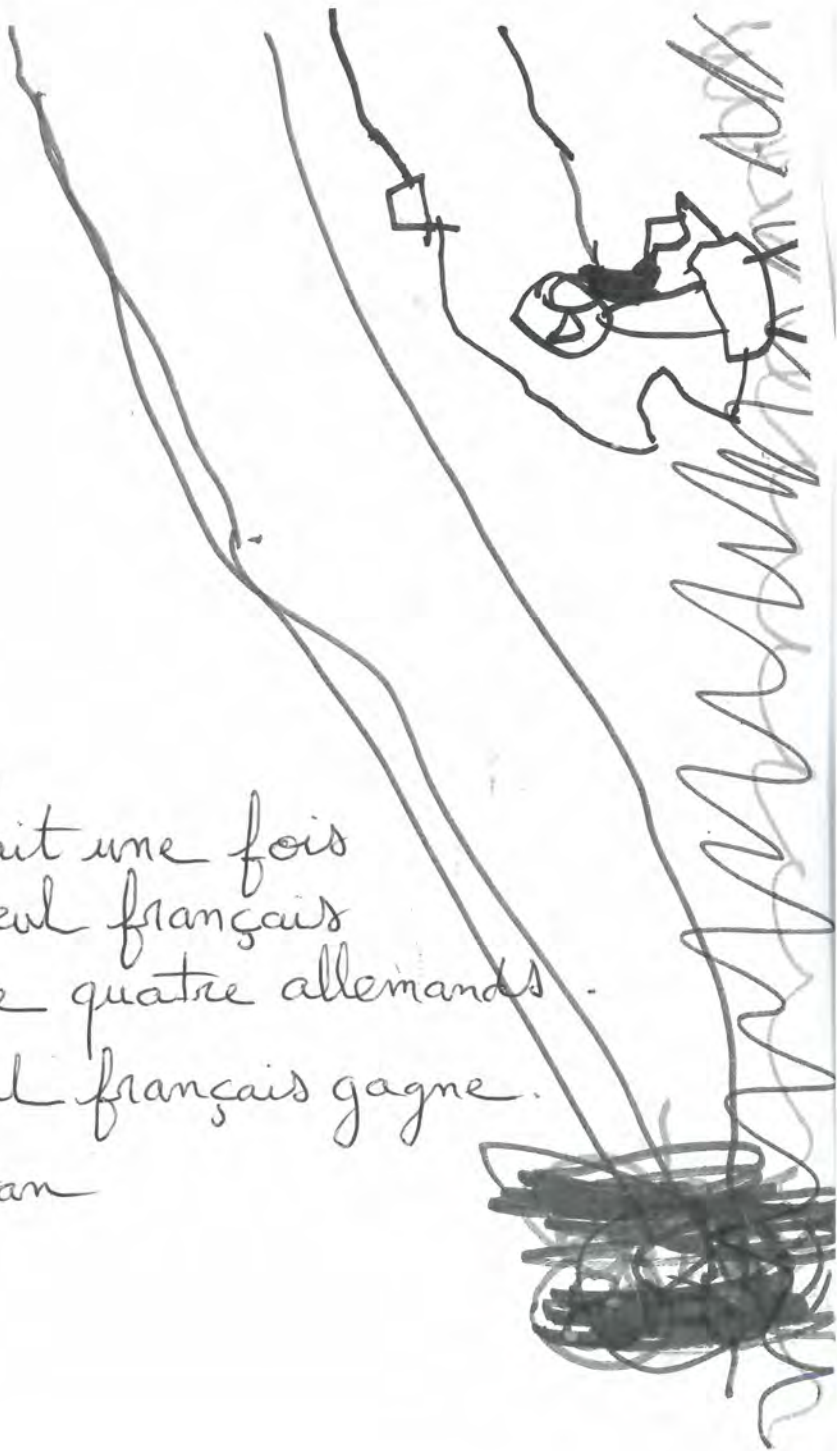 it une fois
eul français
e quatre allemands.
l français gagne.
an